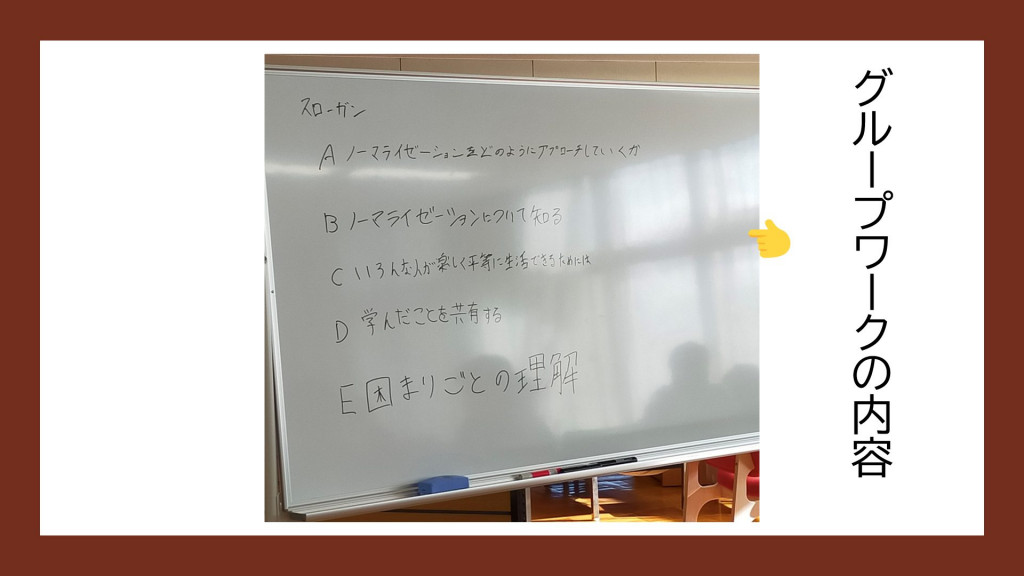 グループワークの内容
スローガン
A ノーマライゼーションをどのようにアプローチしていくか
B ノーマライゼーションについて知る
C いろんな人が楽しく平等に生活できるためには
D 学んだことを共有する
E 困まりごとの理解